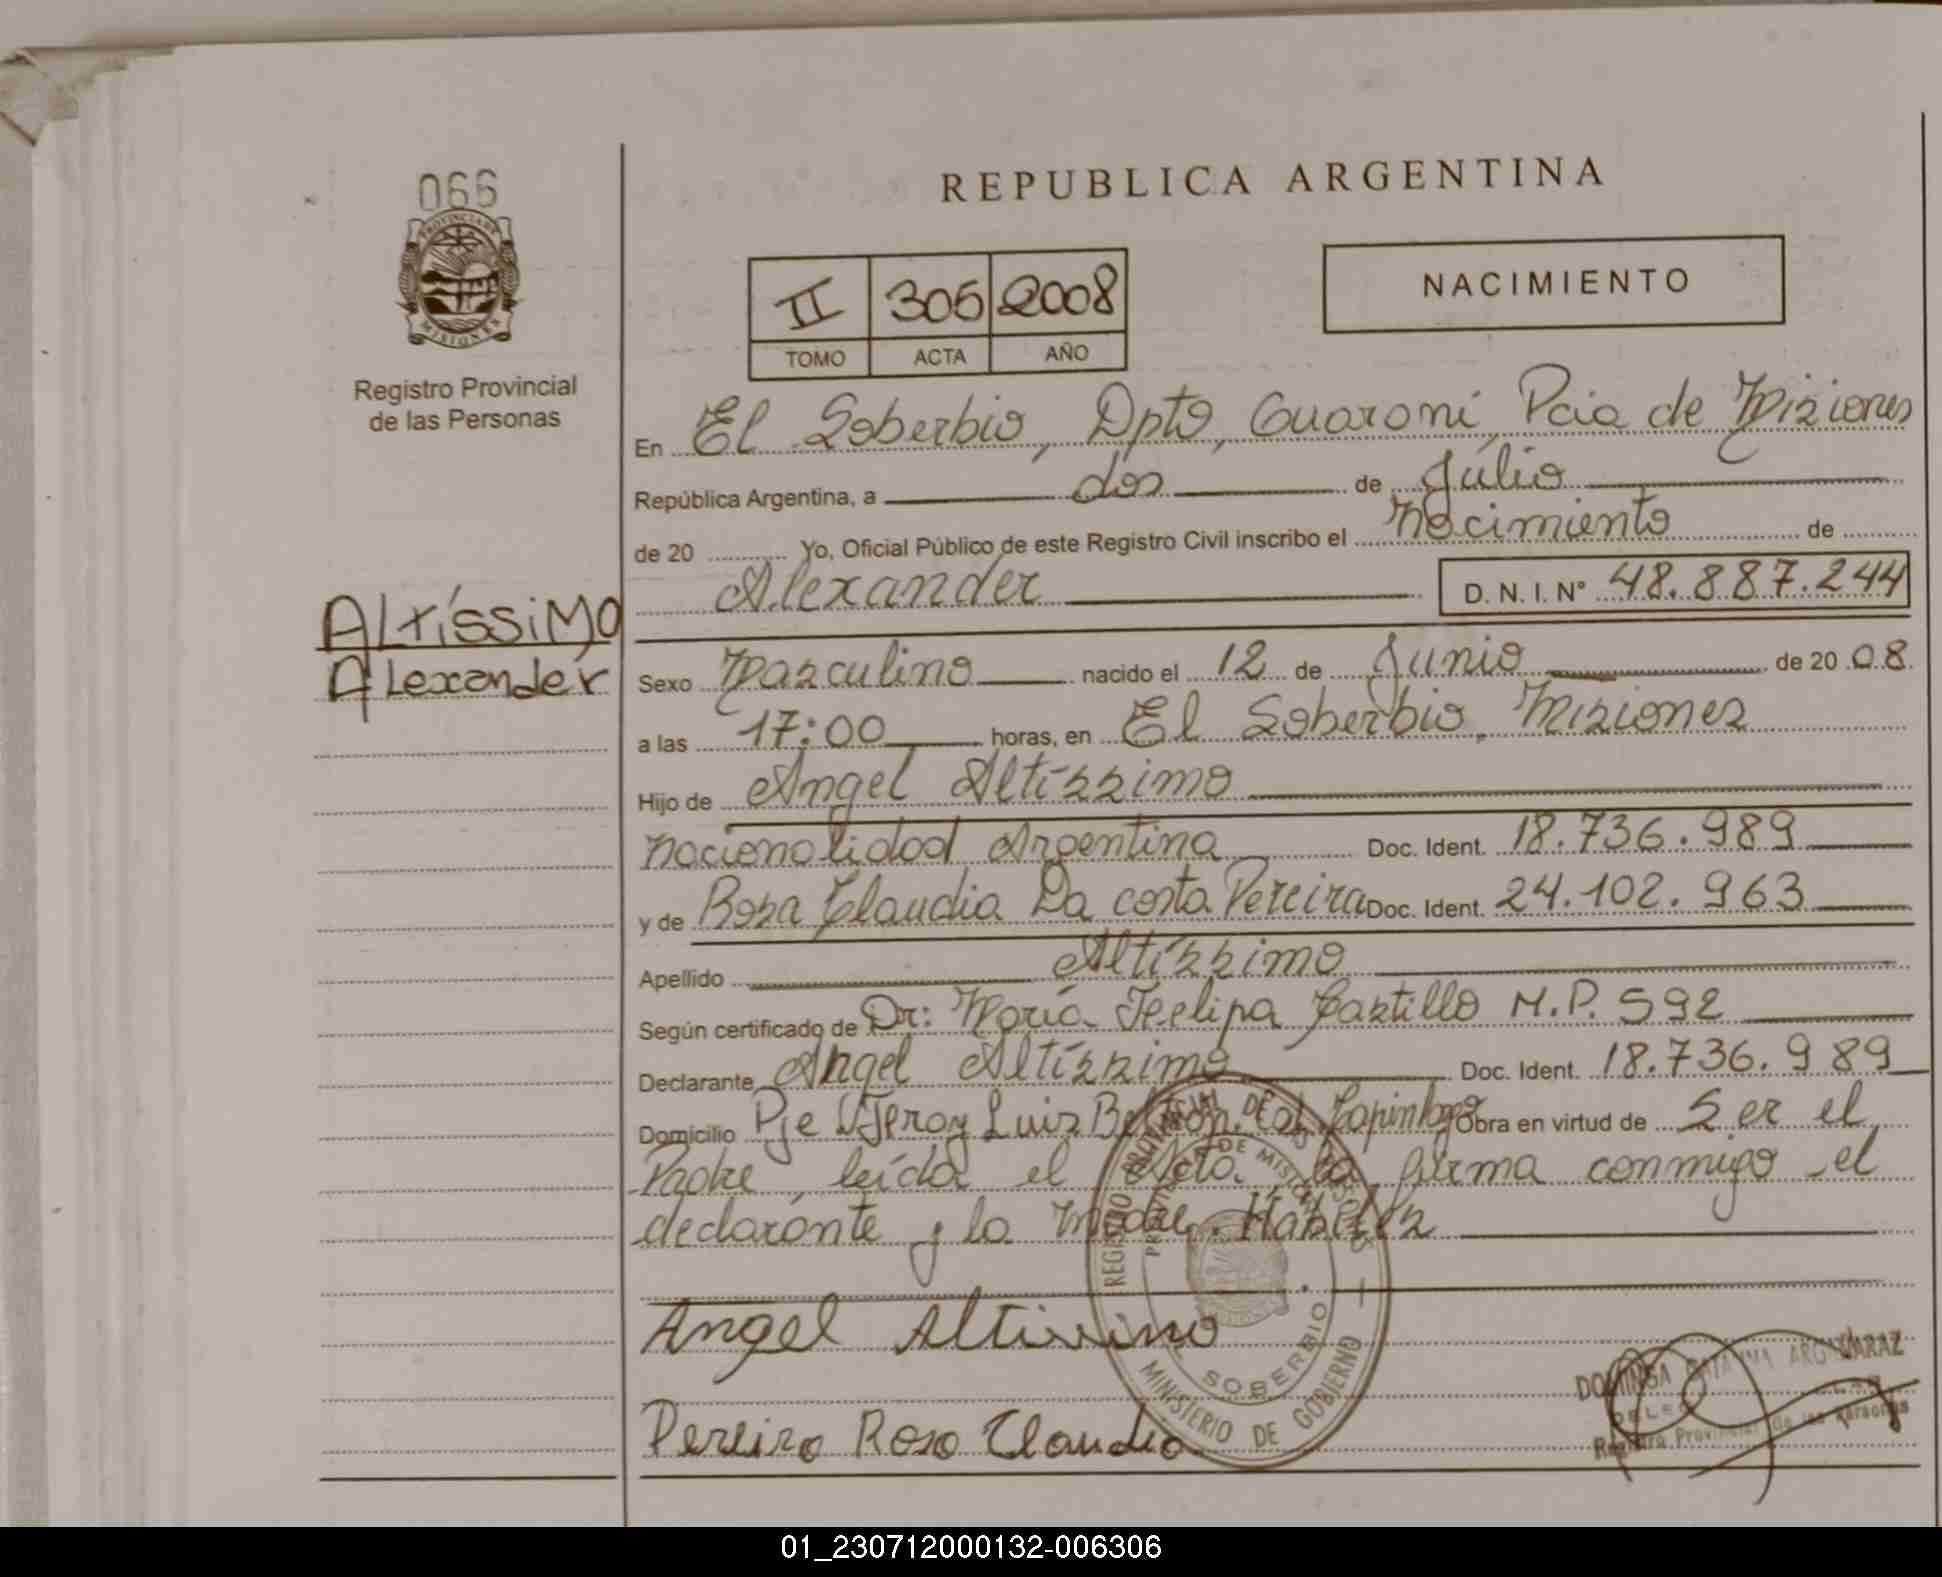 066
PROVINCIA DE
MISIONES
Registro Provincial
de las Personas
ALtíssiMO
ALexander
REPUBLICA ARGENTINA
II 305 2008
TOMO ACTA AÑO
NACIMIENTO
En El Soberbio, Dpto, Guaraní, Pcia de Misiones
República Argentina, a dos de Júlio
de 20 Yo, Oficial Público de este Registro Civil inscribo el nacimiento de
Alexander D. N. I. N° 48.887.244
Sexo Masculino nacido el 12 de Junio de 20 08.
a las 17:00 horas, en El Soberbio, Misiones
Hijo de Angel Altíssimo
nacionalidad Argentina Doc. Ident. 18.736.989
y de Rosa Claudia Da costa Pereira Doc. Ident. 24.102.963
Apellido Altíssimo
Según certificado de Dr: María Felipa Castillo M.P. 592
Declarante Angel Altíssimo Doc. Ident. 18.736.989
Domicilio Pje Luis Obra en virtud de Ser el
Padre, leída el Acta la firma conmigo el
declarante y la madre. Hábiles
Angel Altissimo
Pereira Rosa Claudia
REGISTRO PROVINCIAL DE LAS PERSONAS
PROVINCIA DE MISIONES
SOBERBIO
MINISTERIO DE GOBIERNO
DOMINGA
Registro Provincial de las Personas
01_230712000132-006306